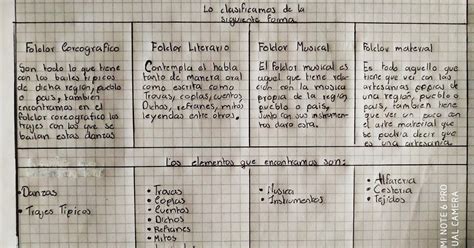 Lo clasificamos de la
siguiente forma
Folclor Coreografico
Son todo lo que tiene
con los bailes tipicos
de dicha region, pueblo
o pais, tambien
encontramos en el
Folclor coreografico los
trajes con los que se
bailan estas danzas
Folclor Literario
Contempla el habla
tanto de manera oral
como escrita como
Trovas, coplas, cuentos,
Dichos, refranes, mitos
leyendas entre otros.
Folclor Musical
El Folclor musical es
aquel que tiene relacion
con la musica
propia de la region,
pueblo o pais,
Junto con sus instrumentos
para esta.
Folclor material
Es todo aquello que
tiene que ver con las
artesanias propias de
una region, pueblo o
pais, tambien tiene
que ver un poco con
el arte material que
se podria decir que
es una artesania.
Los elementos que encontramos son:
• Danzas
• Trajes Tipicos
• Trovas
• Coplas
• Cuentos
• Dichos
• Refranes
• Mitos
• Musica
• Instrumentos
• Alfareria
• Cesteria
• Tejidos
MI NOTE 6 PRO
AL CAMERA